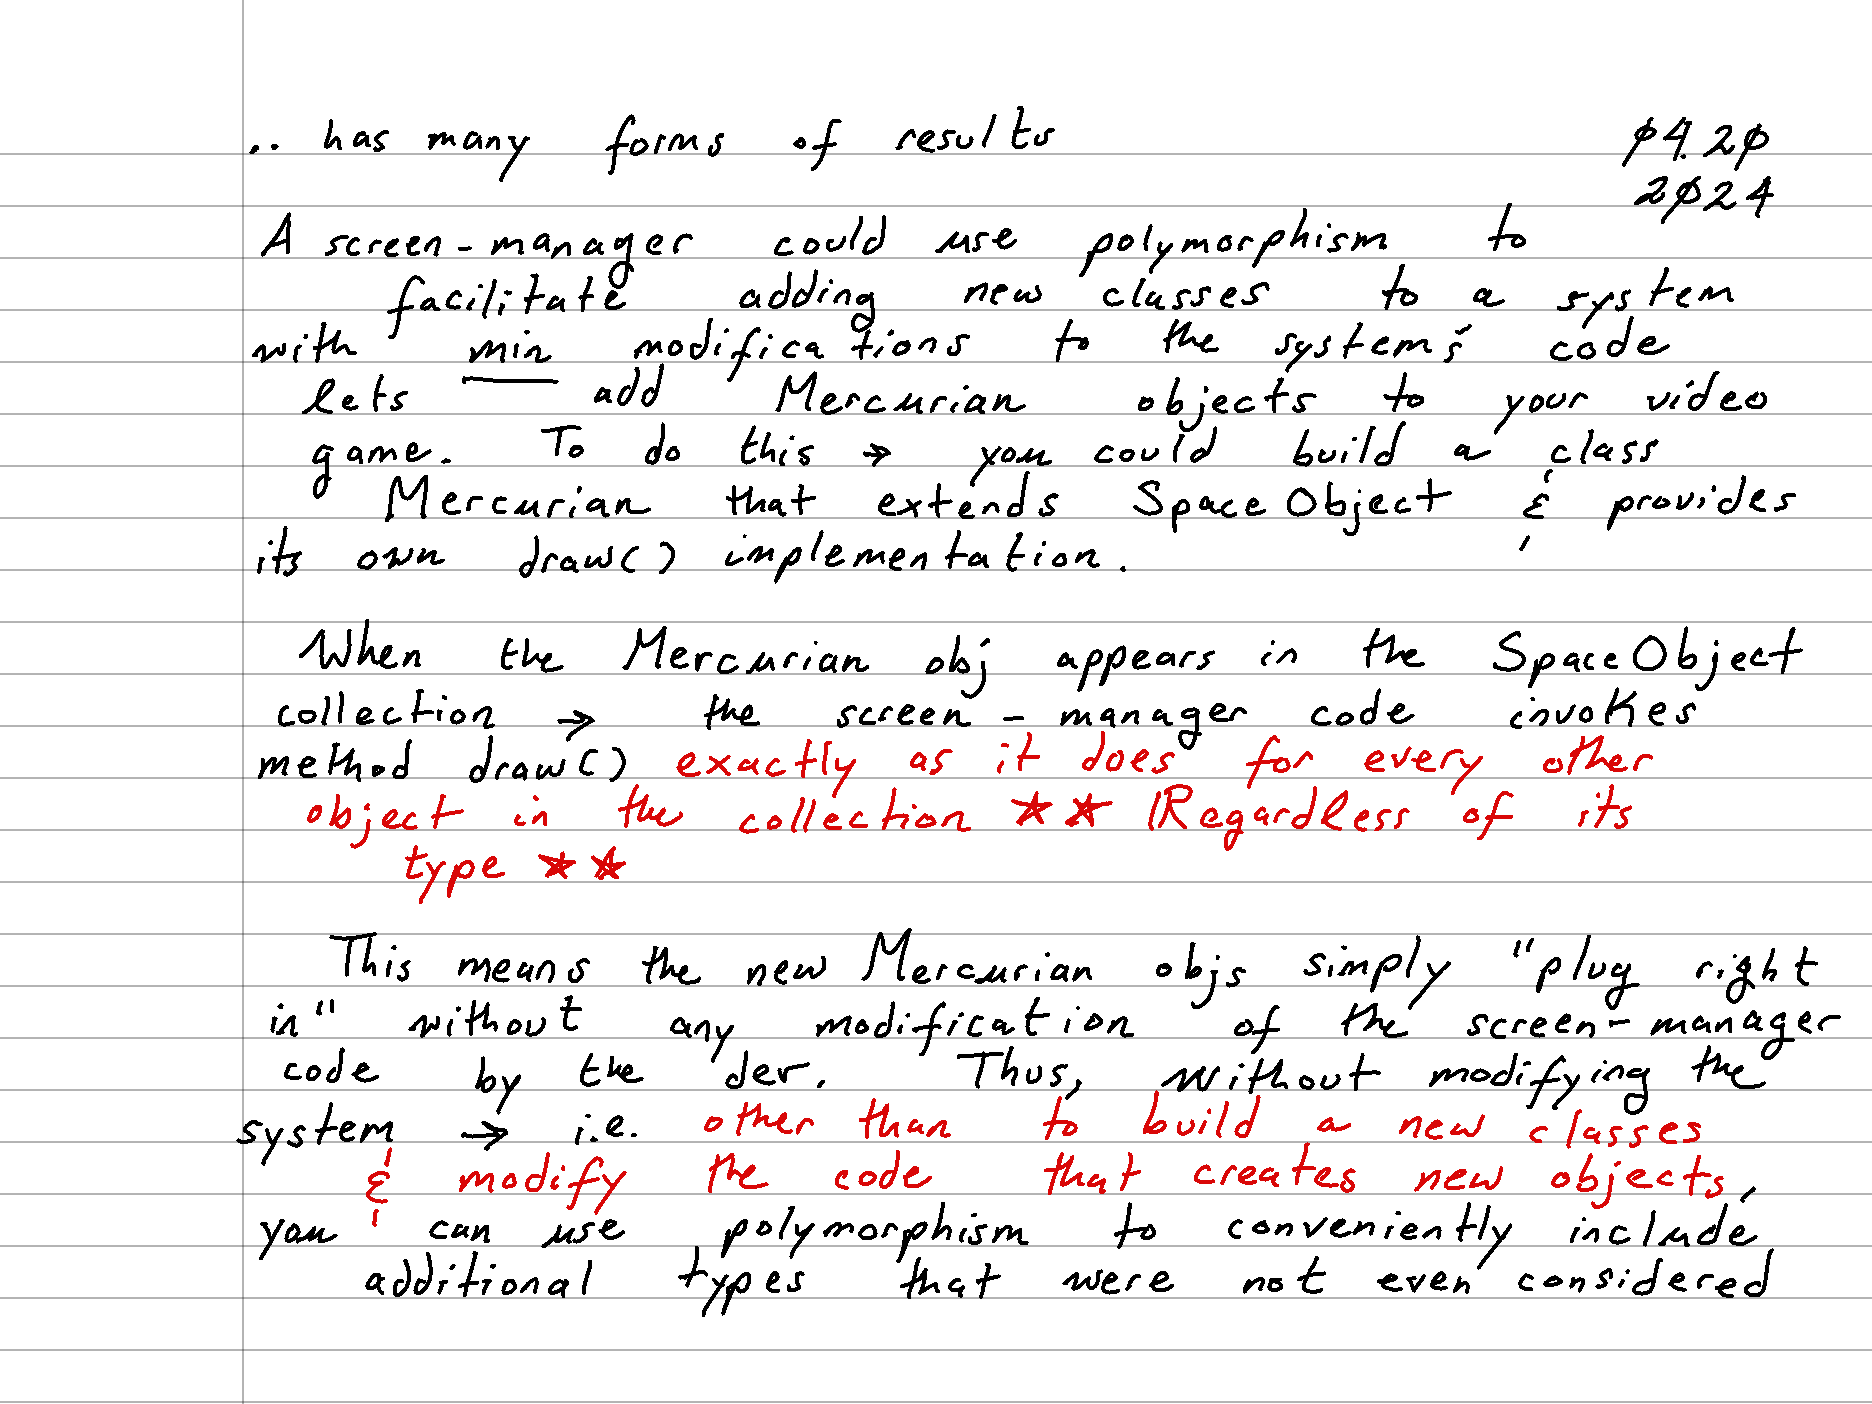 .. has many forms of results
04.20
2024
A screen-manager could use polymorphism to
facilitate adding new classes to a system
with min modifications to the system's code
lets add Mercurian objects to your video
game. To do this → you could build a class
Mercurian that extends SpaceObject & provides
its own draw() implementation.
When the Mercurian obj appears in the SpaceObject
collection → the screen-manager code invokes
method draw() exactly as it does for every other
object in the collection ★★ Regardless of its
type ★★
This means the new Mercurian objs simply "plug right
in" without any modification of the screen-manager
code by the der. Thus, without modifying the
system → i.e. other than to build a new classes
& modify the code that creates new objects,
you can use polymorphism to conveniently include
additional types that were not even considered